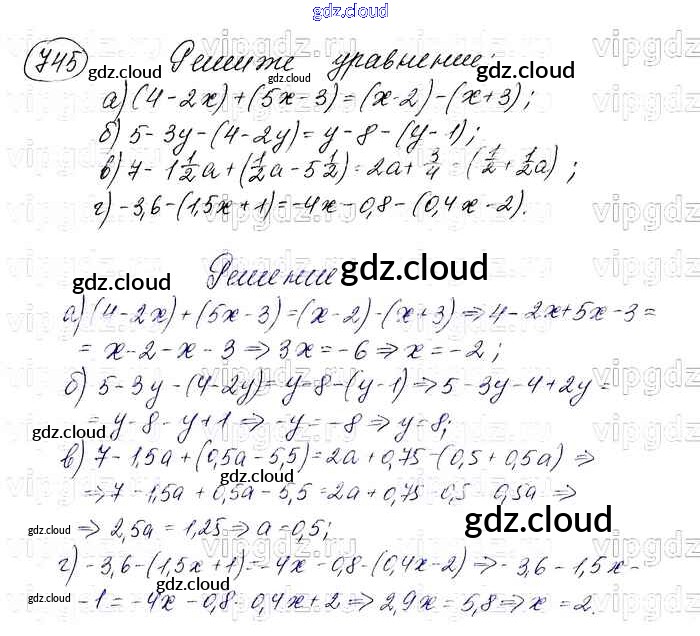 gdz.cloud
745 Решите уравнение:
gdz.cloud gdz.cloud gdz.cloud
а) (4-2x)+(5x-3)=(x-2)-(x+3);
б) 5-3y-(4-2y)=y-8-(y-1);
в) 7-1 1/2 a+(1/2 a-5 1/2)=2a+3/4-(1/2+1/2 a);
г) -3,6-(1,5x+1)=-4x-0,8-(0,4x-2).
gdz.cloud gdz.cloud
Решение gdz.cloud
а) (4-2x)+(5x-3)=(x-2)-(x+3) ⇒ 4-2x+5x-3=
= x-2-x-3 ⇒ 3x=-6 ⇒ x=-2;
б) 5-3y-(4-2y)=y-8-(y-1) ⇒ 5-3y-4+2y=
gdz.cloud
= y-8-y+1 ⇒ -y=-8 ⇒ y=8;
gdz.cloud gdz.cloud
в) 7-1,5a+(0,5a-5,5)=2a+0,75-(0,5+0,5a) ⇒
gdz.cloud
⇒ 7-1,5a+0,5a-5,5=2a+0,75-0,5-0,5a ⇒
gdz.cloud ⇒ 2,5a=1,25 ⇒ a=0,5; gdz.cloud
г) -3,6-(1,5x+1)=-4x-0,8-(0,4x-2) ⇒ -3,6-1,5x-
gdz.cloud gdz.cloud gdz.cloud
-1=-4x-0,8-0,4x+2 ⇒ 2,9x=5,8 ⇒ x=2.